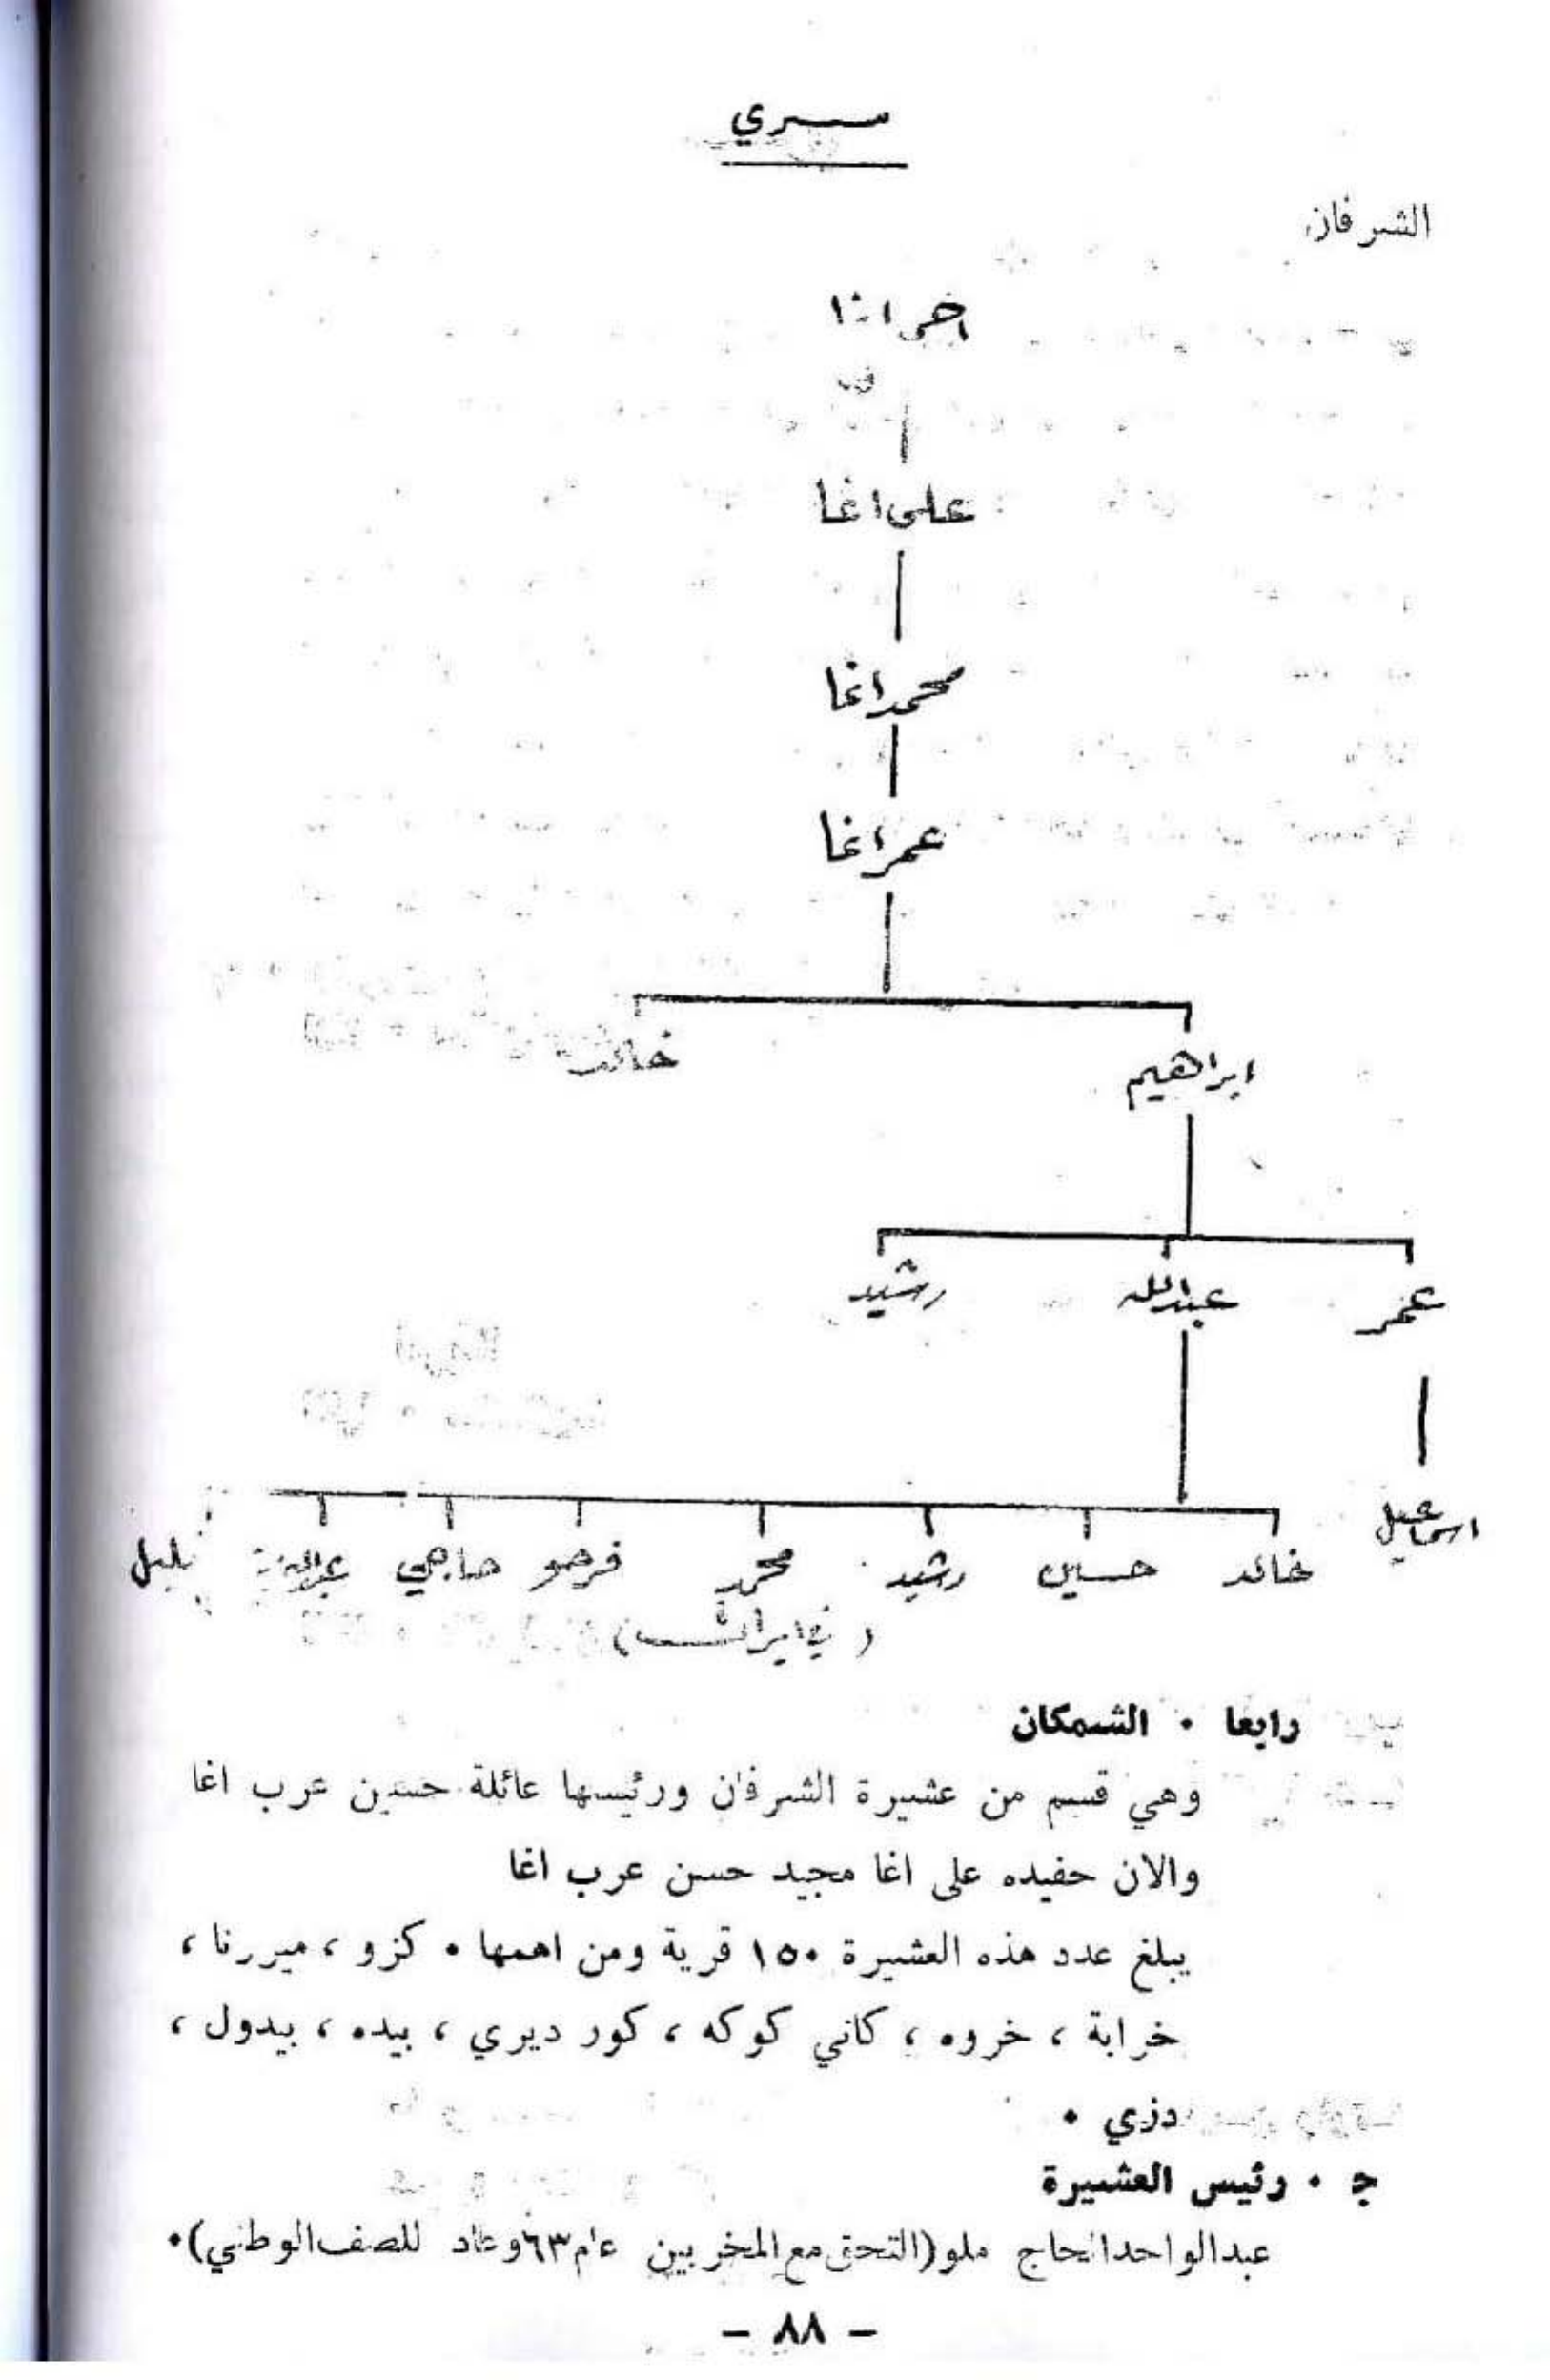 سري
الشرفان
علي اغا
محمد اغا
عمر اغا
ابراهيم خالد
عمر عبدالله رشيد
اسماعيل
خالد حسين رشيد محمد فرحو حاجي
(في ايران)
رابعا ٠ الشمكان
وهي قسم من عشيرة الشرفان ورئيسها عائلة حسين عرب اغا
والان حفيده على اغا مجيد حسن عرب اغا
يبلغ عدد هذه العشيرة ١٥٠ قرية ومن اهمها ٠ كزو ، ميررنا ،
خرابة ، خروه ، كاني كوكه ، كور ديري ، بيده ، بيدول ،
دزي ٠
ج ٠ رئيس العشيرة
عبدالواحدالحاج ملو(التحق مع المخربين عام٦٣وعاد للصف الوطني)٠
– ٨٨ –